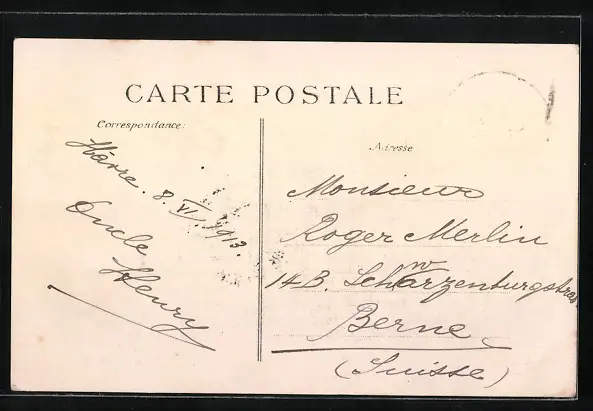 CARTE POSTALE
Correspondance:
Adresse
Hâvre. 8. VI. 1913.
Oncle
Henry
Monsieur
Roger Merlin
14 B. Schwarzenburgstras
Berne
(Suisse)